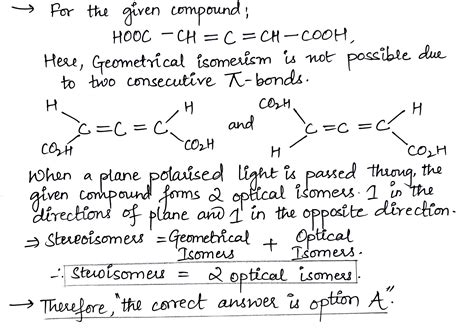 → For the given compound;
HOOC - CH = C = CH - COOH,
Here, Geometrical isomerism is not possible due
to two consecutive π-bonds.
H H CO₂H H
C = C = C and C = C = C
CO₂H CO₂H H CO₂H
When a plane polarised light is passed throug, the
given compound forms 2 optical isomers. 1 in the
directions of plane and 1 in the opposite direction.
⇒ Stereoisomers = Geometrical Isomers + Optical Isomers.
∴ Steroisomers = 2 optical isomers.
→ Therefore, "the correct answer is option A".